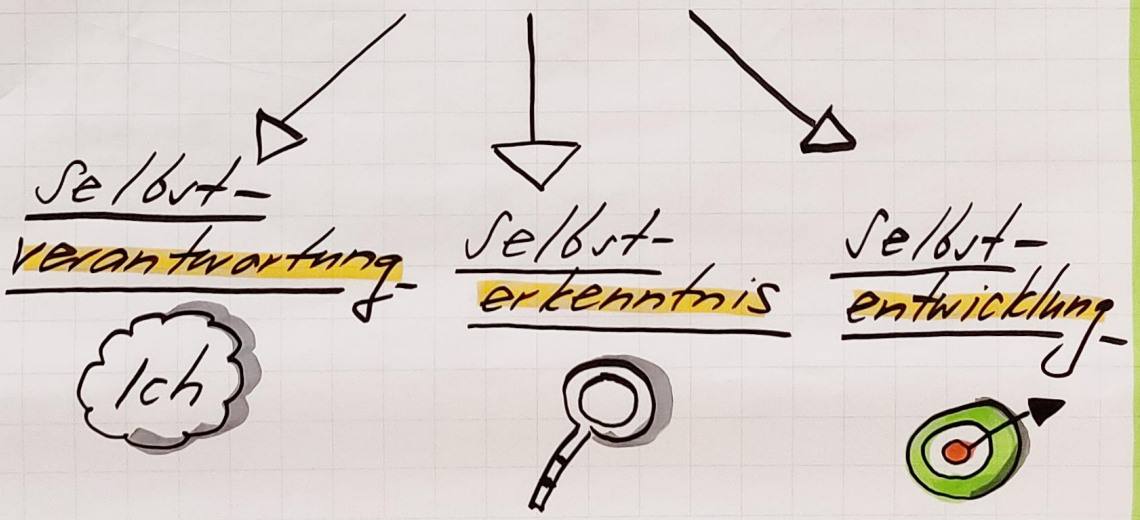 Selbst-
verantwortung
Ich
Selbst-
erkenntnis
Selbst-
entwicklung